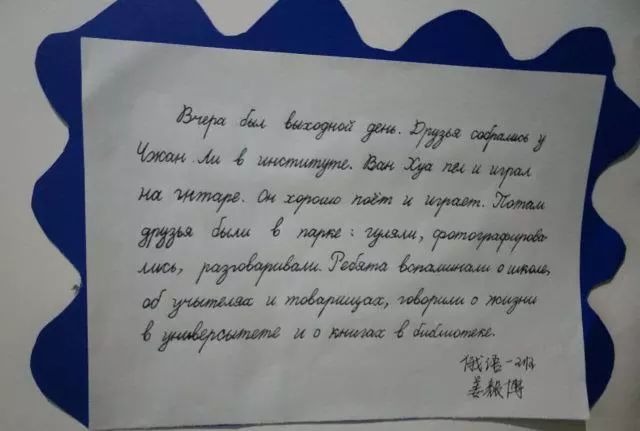 Вчера был выходной день. Друзья собрались у
Чжан Ли в институте. Ван Хуа пел и играл
на гитаре. Он хорошо поёт и играет. Потам
друзья были в парке: гуляли, фотографирова-
лись, разговаривали. Ребята вспоминали о школе,
об учытелях и товарищах, говорили о жизни
в университете и о книгах в библиотеке.
俄语一2班
姜毅博